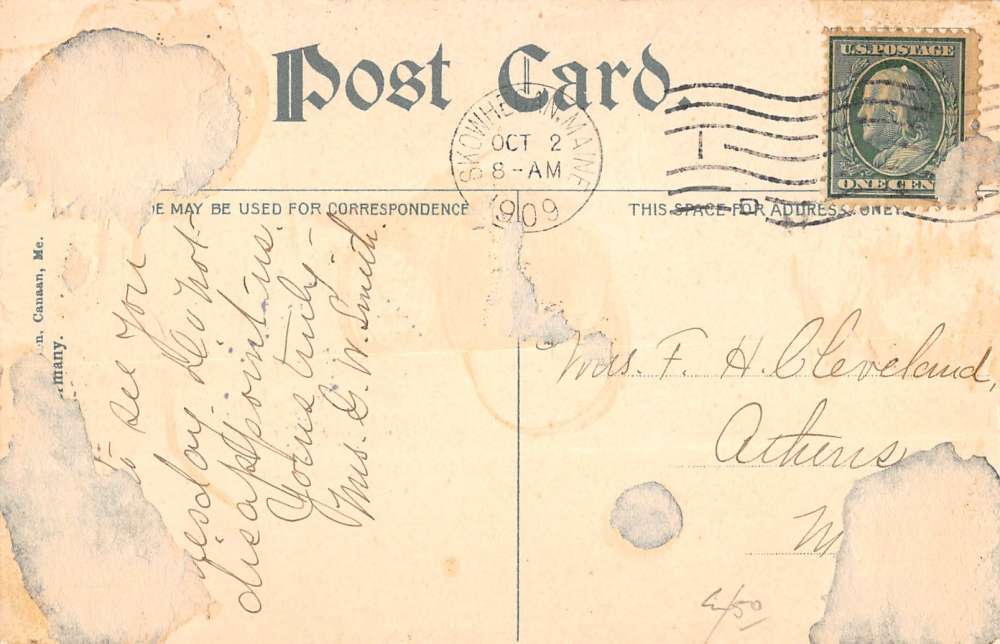 Post Card.
U.S. POSTAGE
ONE CEN
SKOWHEGAN, MAINE
OCT 2
8-AM
1909
DE MAY BE USED FOR CORRESPONDENCE
THIS SPACE FOR ADDRESS ONLY
n, Canaan, Me.
many.
to see you
esday. Do not
disappoint us.
Yours truly
Mrs. G. W. Smith.
Mrs. F. H. Cleveland,
Athens
M